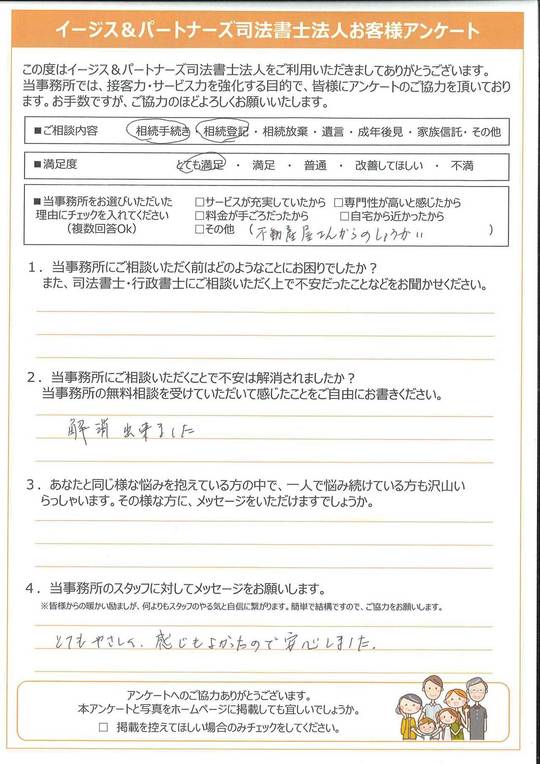 イージス＆パートナーズ司法書士法人お客様アンケート
この度はイージス＆パートナーズ司法書士法人をご利用いただきましてありがとうございます。
当事務所では、接客力・サービス力を強化する目的で、皆様にアンケートのご協力を頂いており
ます。お手数ですが、ご協力のほどよろしくお願いいたします。
■ご相談内容　相続手続き ・ 相続登記・相続放棄・遺言・成年後見・家族信託・その他
■満足度　とても満足 ・ 満足 ・ 普通 ・ 改善してほしい ・ 不満
■当事務所をお選びいただいた　□サービスが充実していたから　□専門性が高いと感じたから
理由にチェックを入れてください　□料金が手ごろだったから　□自宅から近かったから
（複数回答Ok）　□その他　（不動産屋さんからのしょうかい　）
１．当事務所にご相談いただく前はどのようなことにお困りでしたか？
また、司法書士・行政書士にご相談いただく上で不安だったことなどをお聞かせください。
２．当事務所にご相談いただくことで不安は解消されましたか？
当事務所の無料相談を受けていただいて感じたことをご自由にお書きください。
解消出来ました
３．あなたと同じ様な悩みを抱えている方の中で、一人で悩み続けている方も沢山い
らっしゃいます。その様な方に、メッセージをいただけますでしょうか。
４．当事務所のスタッフに対してメッセージをお願いします。
※皆様からの暖かい励ましが、何よりもスタッフのやる気と自信に繋がります。簡単で結構ですので、ご協力をお願いします。
とてもやさしく、感じもよかったので安心しました。
アンケートへのご協力ありがとうございます。
本アンケートと写真をホームページに掲載しても宜しいでしょうか。
□　掲載を控えてほしい場合のみチェックをしてください。